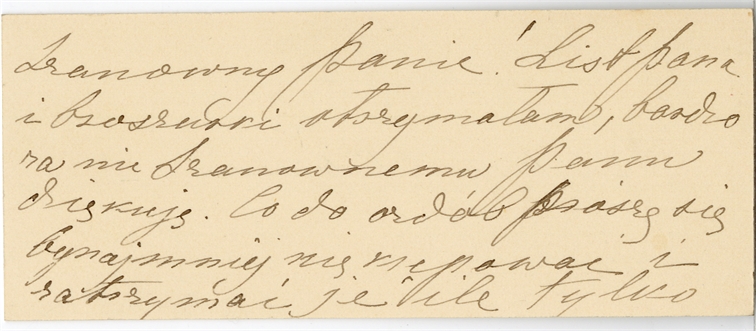 Szanowny Panie! List pana
i broszurki otrzymałam, bardzo
za nie Szanownemu Panu
dziękuję. Co do ozdób proszę się
bynajmniej nie krępować i
zatrzymać je ile tylko